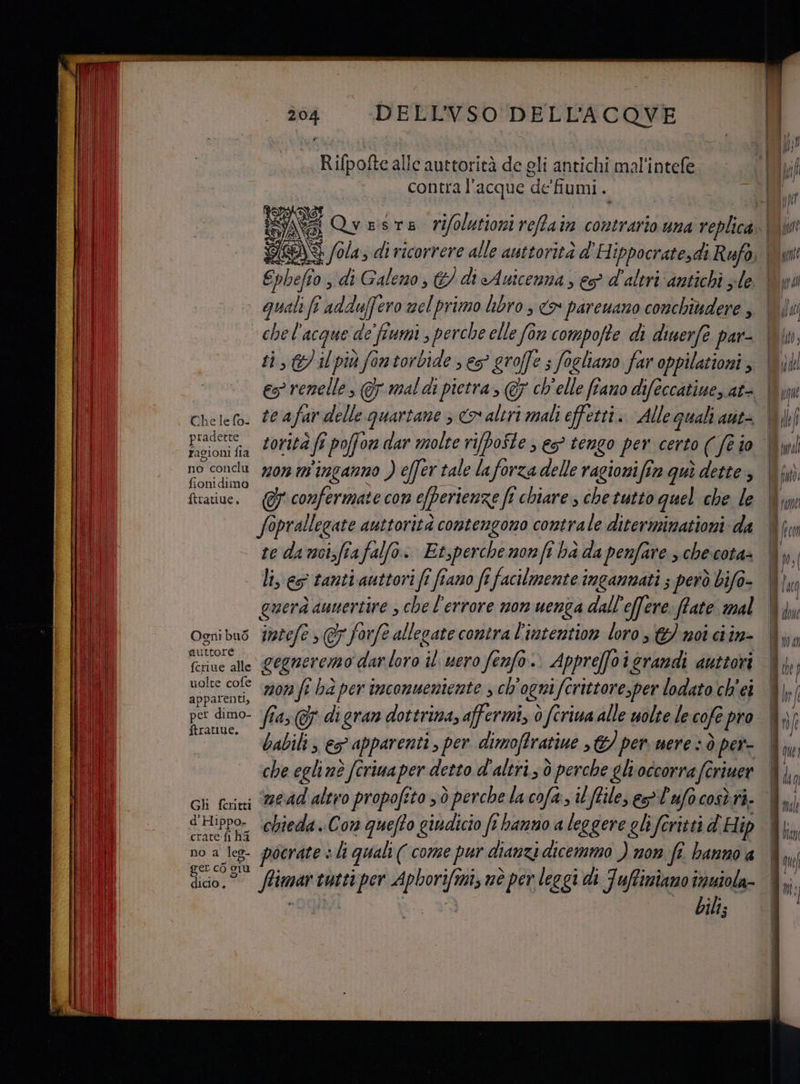 204 DELL'VSO DELL'ACQVE
Rifpofte alle auttorità de gli antichi mal'intefe
contra l'acque de'fiumi.
Qveste rifolutioni reftain contrario una replica
fola, di ricorrere alle auttorità d'Hippocrate, di Rufo,
Ephefio, di Galeno, & di Auicenna, & d'altri antichi, le
quali fi adduffero nel primo libro, & pareuano conchiudere,
che l'acque de'fiumi, perche elle fon compofte di diuerfe par-
ti, & il più fon torbide, & groffe; fogliano far oppilationi,
& renelle, & mal di pietra, & ch'elle fiano difeccatiue, at-
te a far delle quartane, & altri mali effetti. Alle quali aut-
torità fi poffon dar molte rifpofte, & tengo per certo (fe io
non m'inganno) effer tale la forza delle ragioni fin quì dette,
& confermate con efperienze fi chiare, che tutto quel che le
foprallegate auttorità contengono contra le diterminationi da
te da noi, fia falfo. Et, perche non fi hà da penfare, che cota-
li, & tanti auttori fi fiano fi facilmente ingannati; però bifo-
guerà auuertire, che l'errore non uenga dall'effere ftate mal
intefe, & forfe allegate contra l'intention loro, & noi ci in-
gegneremo dar loro il uero fenfo. Appreffo i grandi auttori
non fi hà per inconueniente, ch'ogni fcrittore, per lodato ch'ei
fia, & di gran dottrina, affermi, ò fcriua alle uolte le cofe pro
babili, & apparenti, per dimoftratiue, & per uere: ò per-
che egli nè fcriua per detto d'altri, ò perche gli occorra fcriuer
ne ad altro propofito, ò perche la cofa, il ftile, & l'ufo così ri-
chieda. Con quefto giudicio fi hanno a leggere gli fcritti d'Hip
pocrate: li quali (come pur dianzi dicemmo) non fi hanno a
ftimar tutti per Aphorifmi, nè per leggi di Juftiniano inuiola-
bili;
Che le fo-
pradette
ragioni fia
no conclu
fioni dimo
ftratiue.
Ogni buõ
auttore
fcriue alle
uolte cofe
apparenti,
per dimo-
ftratiue.
Gli fcritti
d'Hippo-
crate fi hã
no a leg-
ger cõ giu
dicio.